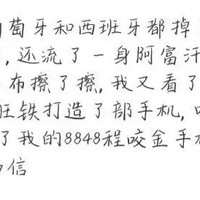 葡萄牙和西班牙都掉
,还流了一身阿富汗
布擦了擦,我又看了
旺铁打造了部手机,
了我的8848程咬金手
信